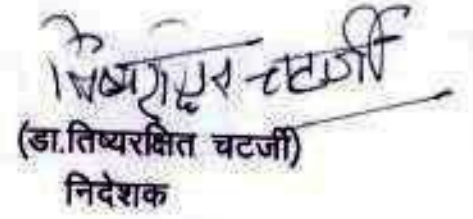 तिष्यरक्षित चटर्जी
(डा.तिष्यरक्षित चटर्जी)
निदेशक